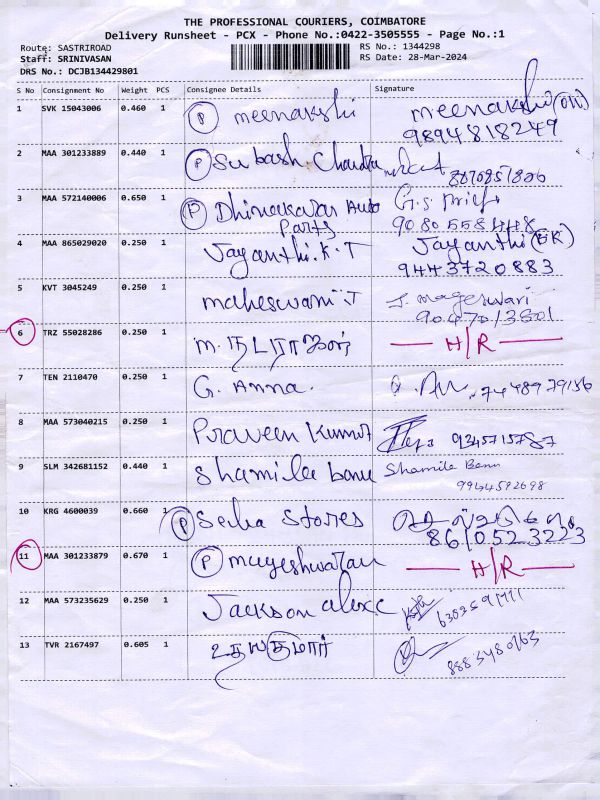 THE PROFESSIONAL COURIERS, COIMBATORE
Delivery Runsheet - PCX - Phone No.:0422-3505555 - Page No.:1
Route: SASTRIROAD RS No.: 1344298
Staff: SRINIVASAN RS Date: 28-Mar-2024
DRS No.: DCJB134429801
S No Consignment No Weight PCS Consignee Details Signature
1 SVK 15043006 0.460 1 P meenakshi meenakshi
9894818249
2 MAA 301233889 0.440 1 P Subash. Chandra
3 MAA 572140006 0.650 1 P Dhinakaran Auto G.S
Parts
4 MAA 865029020 0.250 1 Jayanthi. K. T Jayanthi
9443720883
5 KVT 3045249 0.250 1 maheswari J J. mageswari
9047013801
6 TRZ 55028286 0.250 1 M. நடராஜன் H/R
7 TEN 2110470 0.250 1 G. Anna. 7448979156
8 MAA 573040215 0.250 1 Praveen Kumar 9345715787
9 SLM 342681152 0.440 1 Shamila banu Shamila Banu
9944592698
10 KRG 4600039 0.660 1 P Seba Stores
8610523223
11 MAA 301233879 0.670 1 P mageshwaran H/R
12 MAA 573235629 0.250 1 Jackson
13 TVR 2167497 0.605 1 உதயகுமார் 8883480763